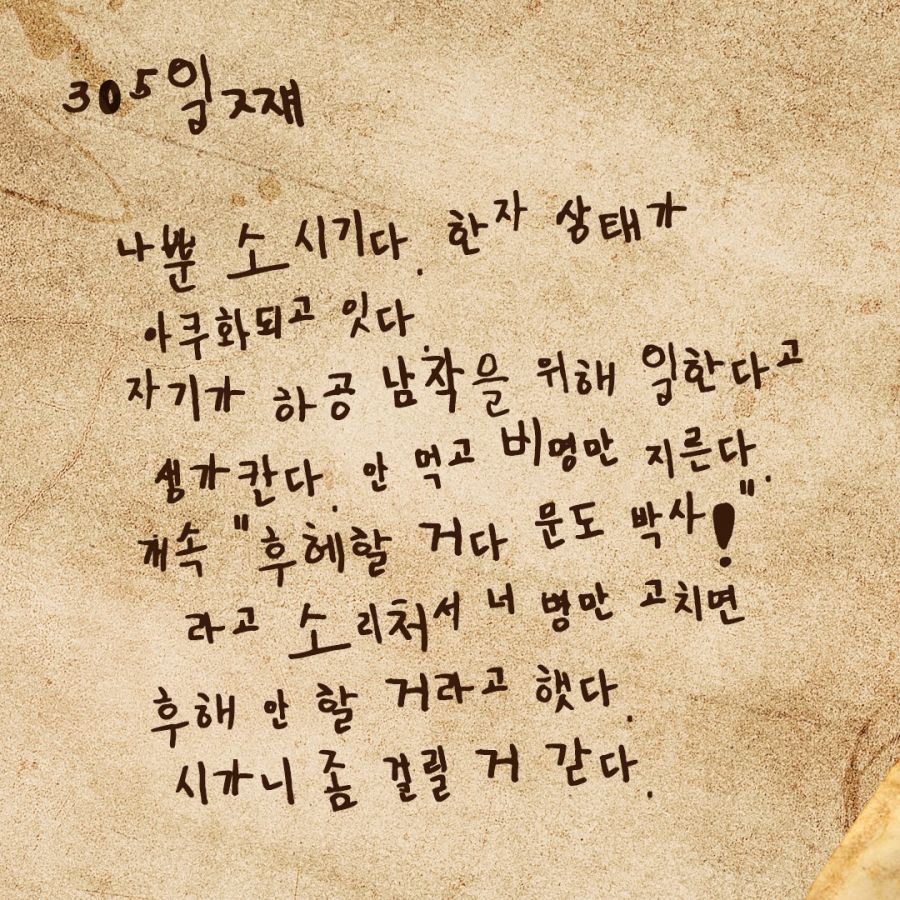 305일쨰
나뿐 소시기다. 한자 상태가
아쿠화되고 잇다.
자기가 하공 남착을 위해 입한다고
셍가칸다. 안 먹고 비명만 지른다.
개속 "후헤할 거다 문도 박사!"
라고 소리처서 너 병만 고치면
후해 안 할 거라고 햇다.
시가니 좀 걸릴 거 갇다.